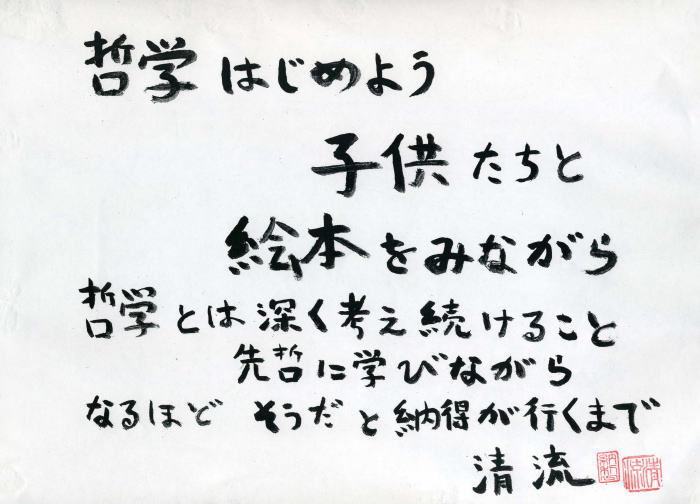 哲学はじめよう
子供たちと
絵本をみながら
哲学とは深く考え続けること
先哲に学びながら
なるほど そうだと納得が行くまで
清流